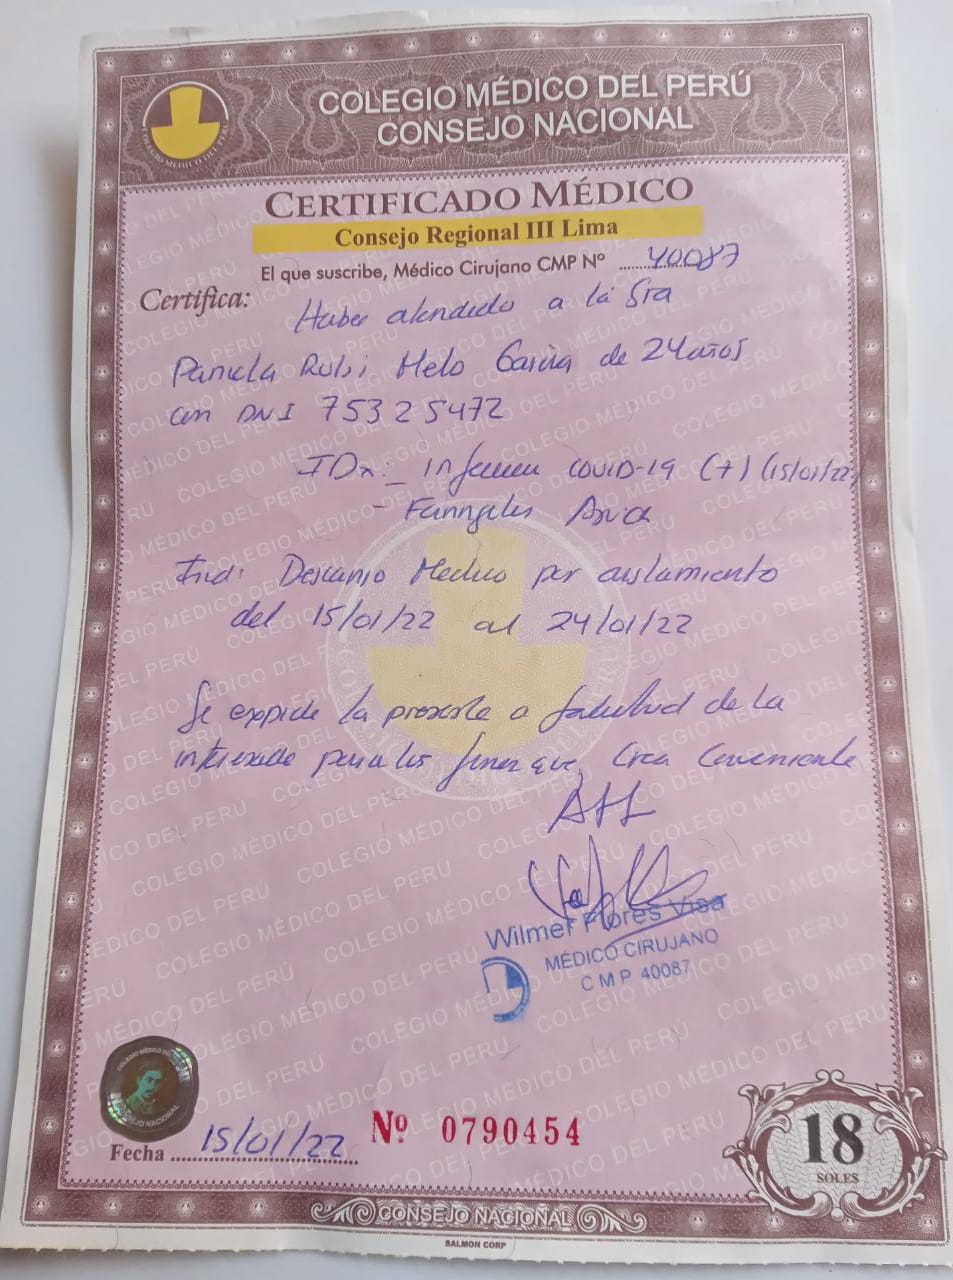 COLEGIO MÉDICO DEL PERÚ
CONSEJO NACIONAL
COLEGIO MEDICO DEL PERU
CERTIFICADO MÉDICO
Consejo Regional III Lima
El que suscribe, Médico Cirujano CMP Nº 40087
Certifica: Haber atendido a la Sra
Pamela Rubi Melo García de 24 años
con DNI 75325472
IDx: COVID-19 (+) (15/01/22
Ind: Descanso Medico por aislamiento
del 15/01/22 al 24/01/22
Se expide la presente a solicitud de la
interesada para los fines que crea conveniente
Wilmer Flores Visa
MÉDICO CIRUJANO
CMP 40087
Nº 0790454
Fecha 15/01/22
18
SOLES
CONSEJO NACIONAL
SALMON CORP